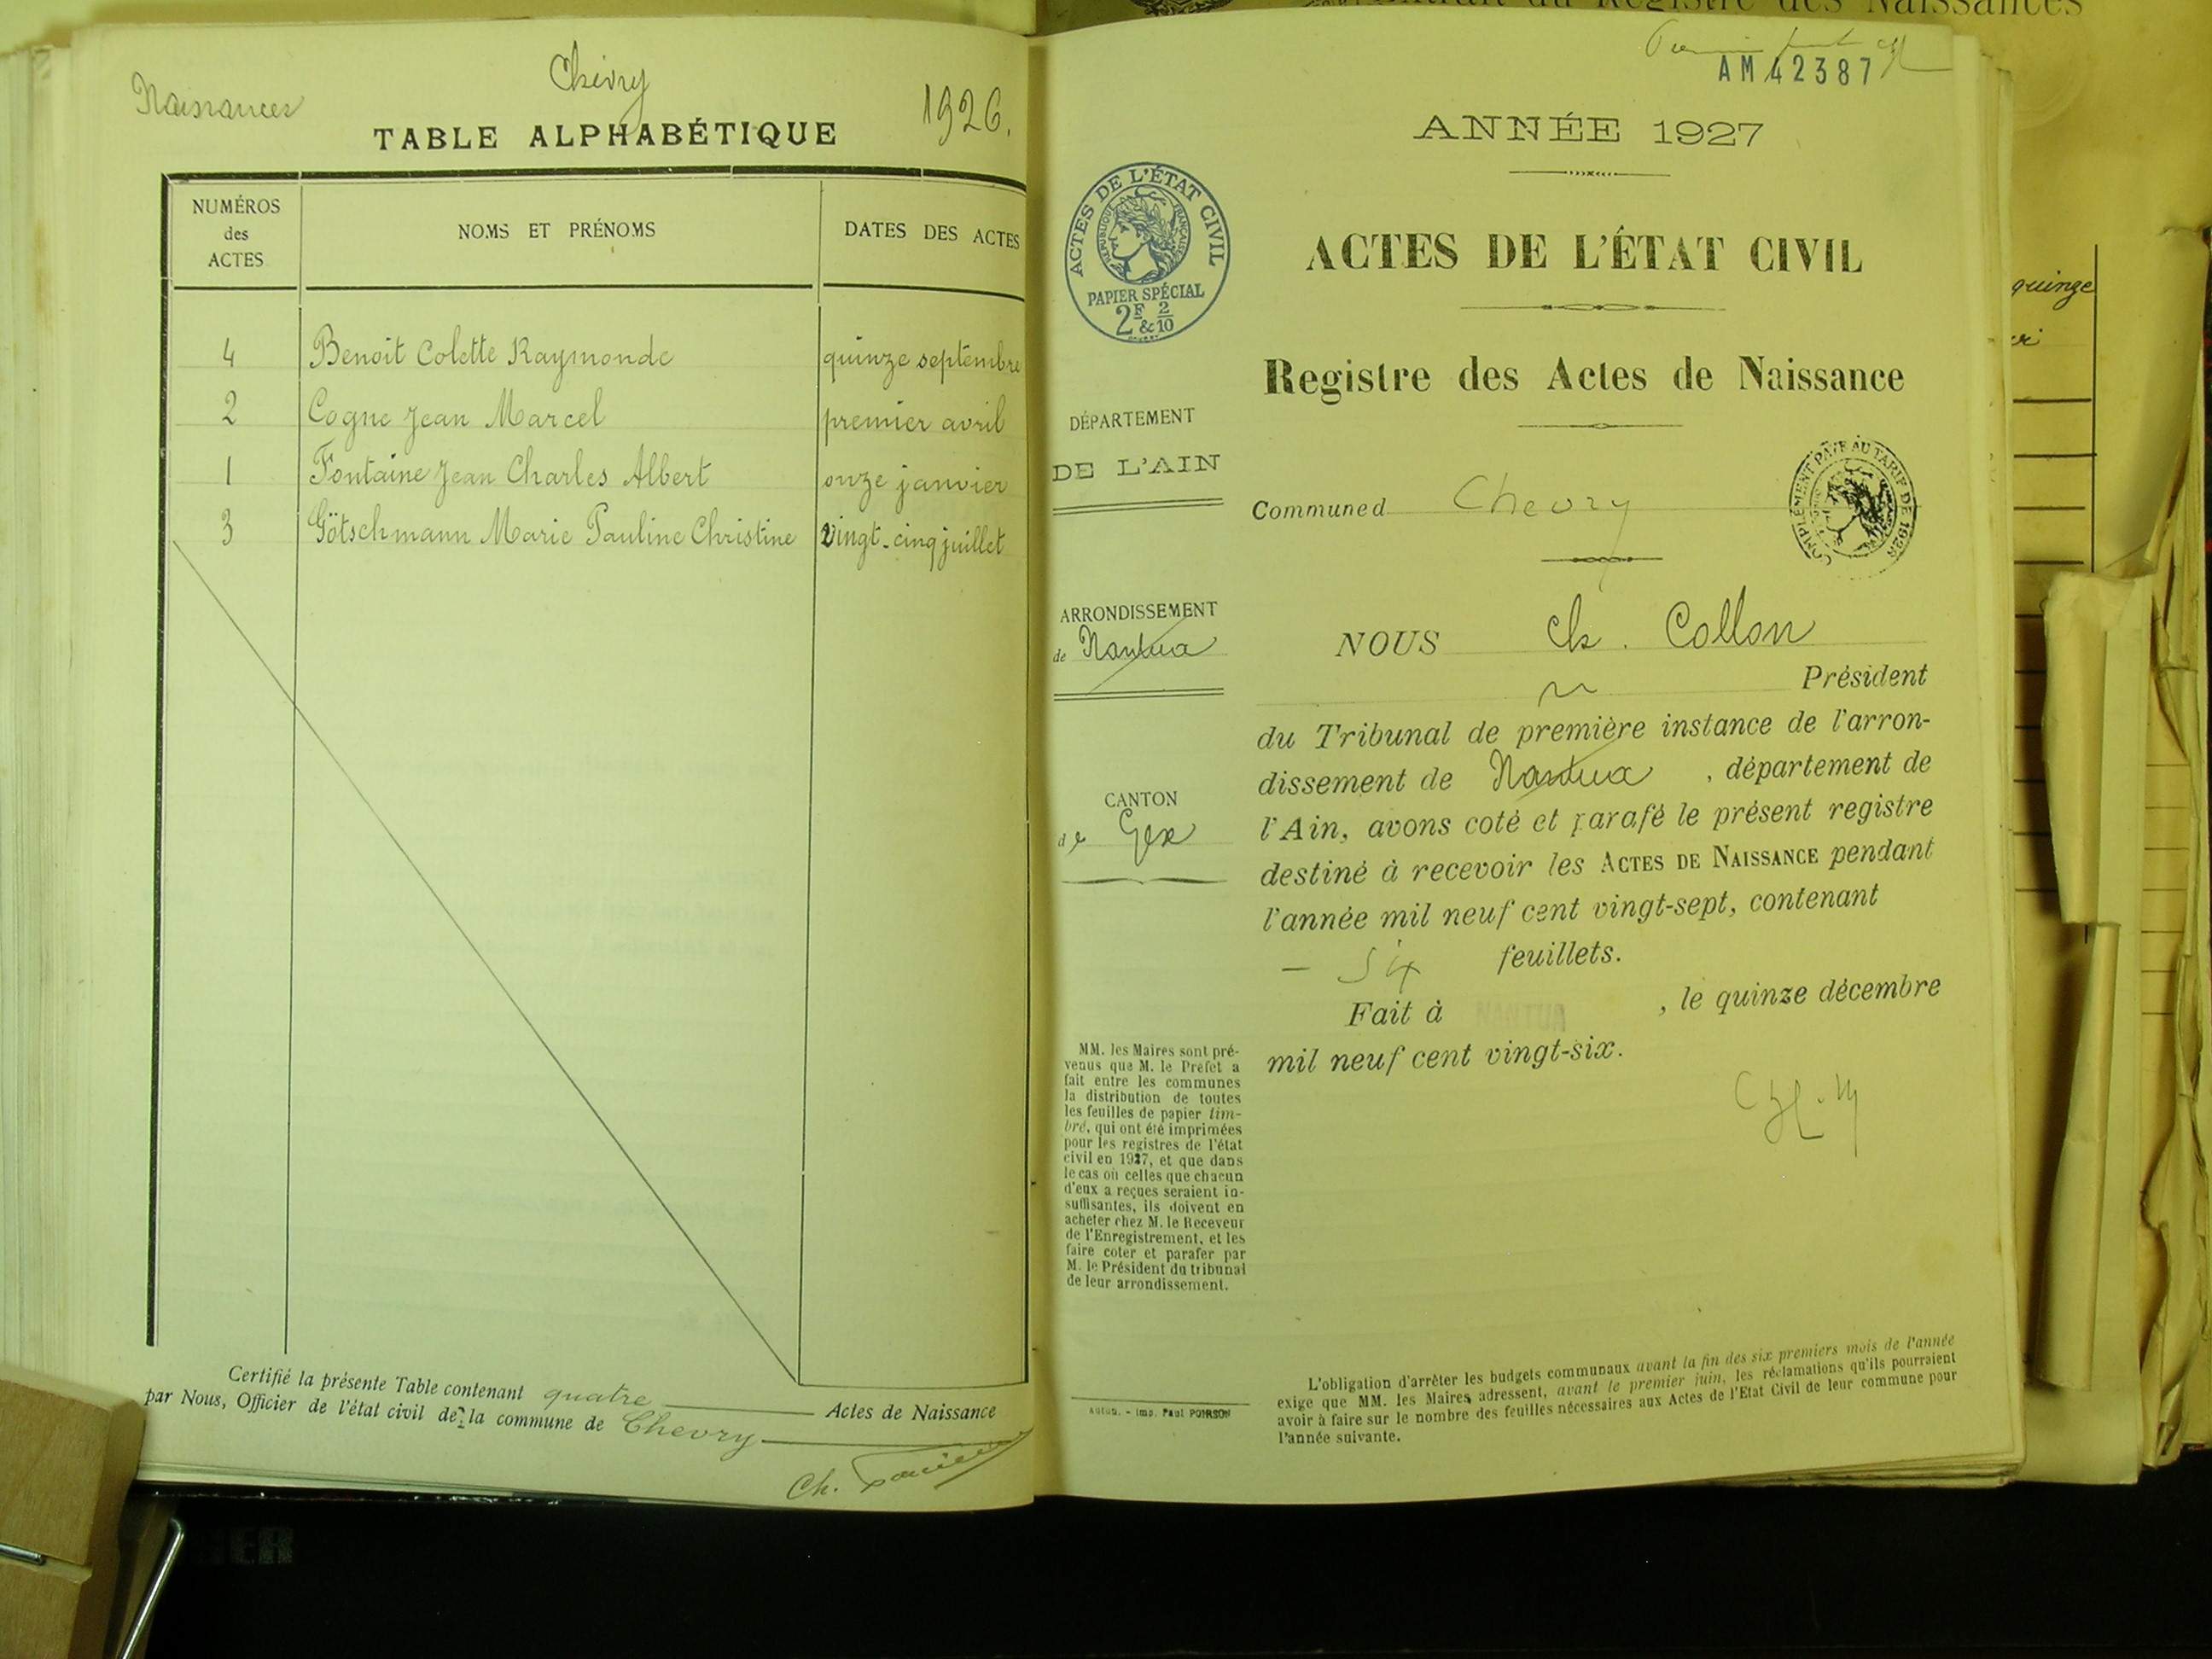 Naissances
Chevry
1926.
TABLE ALPHABÉTIQUE
NUMÉROS
des
ACTES
NOMS ET PRÉNOMS
DATES DES ACTES
4 Benoit Colette Raymonde quinze septembre
2 Cogne Jean Marcel premier avril
1 Fontaine Jean Charles Albert onze janvier
3 Götschmann Marie Pauline Christine vingt-cinq juillet
Certifié la présente Table contenant quatre Actes de Naissance
par Nous, Officier de l'état civil de la commune de Chevry
Ch.
des Naissances
AM 42387
ANNÉE 1927
ACTES DE L'ÉTAT CIVIL
RÉPUBLIQUE FRANÇAISE
PAPIER SPÉCIAL
2F & 2/10
ACTES DE L'ÉTAT CIVIL
Registre des Actes de Naissance
DÉPARTEMENT
DE L'AIN
Commune d Chevry
COMPLÉMENT PAYÉ AU TARIF DE 1926
ARRONDISSEMENT
de Nantua
CANTON
de Gex
NOUS Ch. Collon
Président
du Tribunal de première instance de l'arron-
dissement de Nantua, département de
l'Ain, avons coté et parafé le présent registre
destiné à recevoir les ACTES DE NAISSANCE pendant
l'année mil neuf cent vingt-sept, contenant
– six feuillets.
Fait à , le quinze décembre
mil neuf cent vingt-six.
MM. les Maires sont pré-
venus que M. le Préfet a
fait entre les communes
la distribution de toutes
les feuilles de papier tim-
bré, qui ont été imprimées
pour les registres de l'état
civil en 1927, et que dans
le cas où celles que chacun
d'eux a reçues seraient in-
suffisantes, ils doivent en
acheter chez M. le Receveur
de l'Enregistrement, et les
faire coter et parafer par
M. le Président du tribunal
de leur arrondissement.
Imp. Paul POIRSON
L'obligation d'arrêter les budgets communaux avant la fin des six premiers mois de l'année
exige que MM. les Maires adressent, avant le premier juin, les réclamations qu'ils pourraient
avoir à faire sur le nombre des feuilles nécessaires aux Actes de l'Etat Civil de leur commune pour
l'année suivante.
quinze